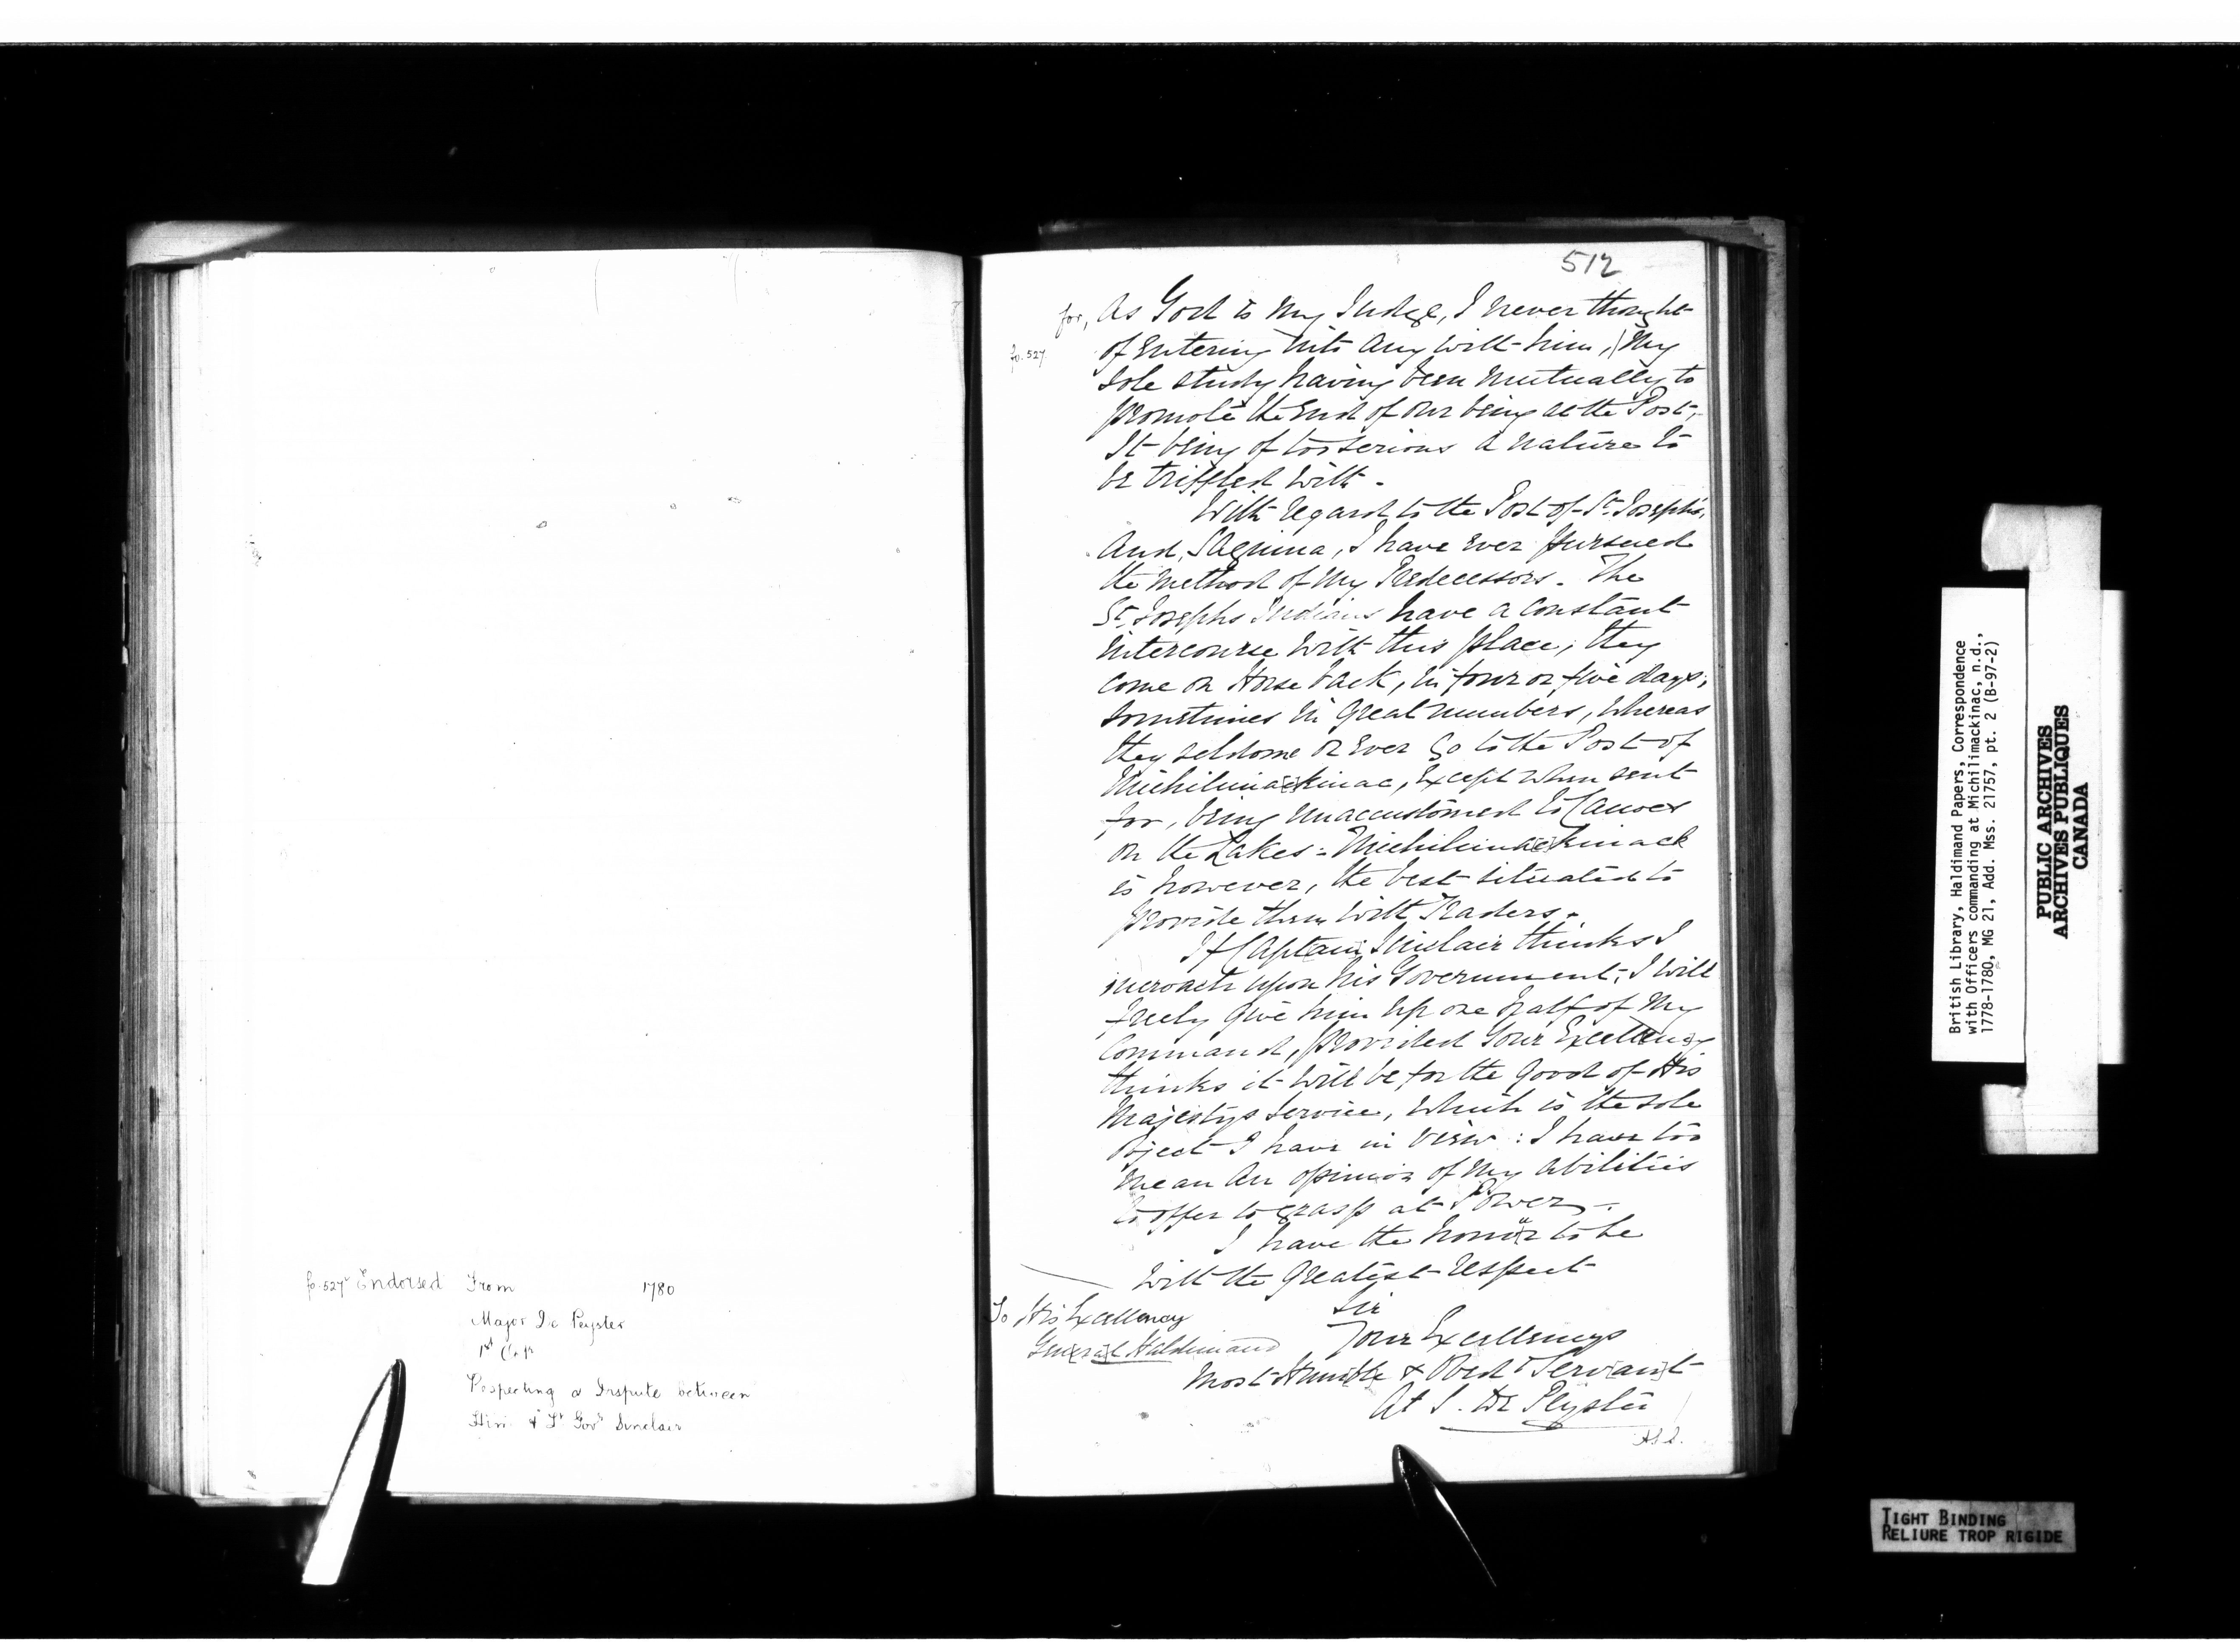 fo. 527v Endorsed From 1780
Major De Peyster
Respecting a Dispute between
Him & Lt Govr Sinclair
512
for, As God is my Judge, I never thought
fo. 527
of Entering into Any with him, My
sole study having been Mutually to
promote the End of our being at the Post,
It being of too serious a nature to
be triffled with.
With regard to the Post of St. Josephs,
And, Saguina, I have Ever pursued
the Method of My Predecessors. The
St. Josephs Indians have a Constant
intercourse with this place, they
Come on Horse back, in four or five days,
Sometimes in Great numbers, Whereas
they seldome or Ever Go to the Post of
Michilima[c]kinac, Except when sent
for, being Unaccustomed to Canoes
on the Lakes = Michilima[c]kinack
is however, the best situated to
provide them with Traders.
If Captain Sinclair thinks I
incroach upon his Government, I will
freely Give him up one half of My
Command, provided Your Excellency
thinks it will be for the Good of His
Majestys Service, Which is the sole
Oject I have in View : I have too
Mean An opinion of My Abilities
to offer to grasp at Power.
I have the honour to be
With the Greatest respect
Sir
To His Excellency
General Haldimand
Your Excellencys
Most Humble & Obedt Serv[an]t
At S. De Peyster
A.L.S.
British Library, Haldimand Papers, Correspondence
with Officers commanding at Michilimackinac, n.d.,
1778-1780, MG 21, Add. Mss. 21757, pt. 2 (B-97-2)
PUBLIC ARCHIVES
ARCHIVES PUBLIQUES
CANADA
TIGHT BINDING
RELIURE TROP RIGIDE